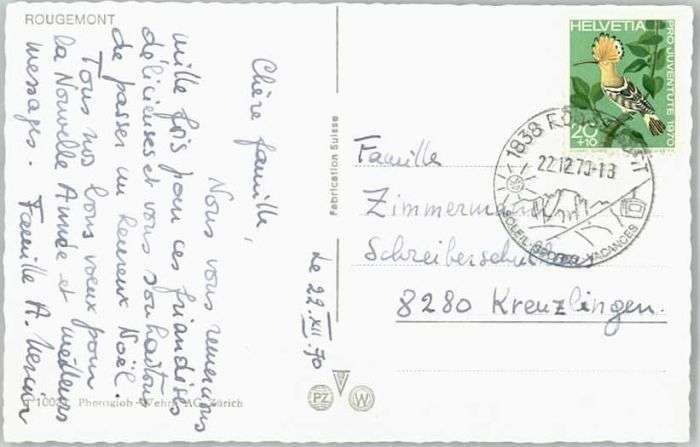 ROUGEMONT
Chère famille,
Nous vous remercions
mille fois pour ces friandises
délicieuses et vous souhaitons
de passer un heureux Noël.
Tous nos bons voeux pour
la Nouvelle Année et meilleurs
messages. Famille A.
Le 22.XII.70
Fabrication Suisse
Photoglob-Wehrli AG Zürich
PZ W
HELVETIA
PRO JUVENTUTE 1970
20+10
1838 ROUGEMONT
22.12.70-18
SOLEIL SPORTS VACANCES
Famille
Zimmermann
Schreiberschulhaus
8280 Kreuzlingen.